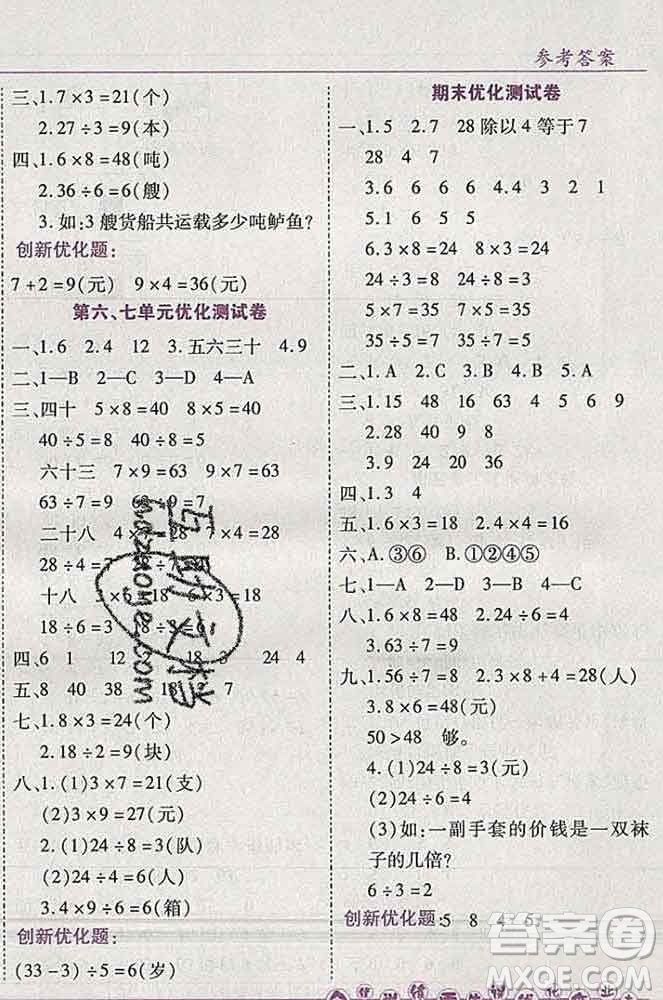 参考答案
三、1.7×3=21(个)
2.27÷3=9(本)
四、1.6×8=48(吨)
2.36÷6=6(艘)
3.如:3艘货船共运载多少吨鲈鱼?
创新优化题:
7+2=9(元) 9×4=36(元)
第六、七单元优化测试卷
一、1.6 2.4 12 3.五六三十 4.9
二、1—B 2—A 3—D 4—C
三、四十 5×8=40 8×5=40
40÷5=8 40÷8=5
六十三 7×9=63 9×7=63
63÷7=9 63÷9=7
二十八 4× =28 7×4=28
28÷4=7
十八 ×6=18 ×3=18
18÷6=3 18÷3=6
四、6 1 12 3 24 4
五、8 40 38 7
七、1.8×3=24(个)
2.18÷2=9(块)
八、1.(1)3×7=21(支)
(2)3×9=27(元)
2.(1)24÷8=3(队)
(2)24÷4=6(人)
3.4×9=36 36÷6=6(箱)
创新优化题:
(33-3)÷5=6(岁)
期末优化测试卷
一、1.5 2.7 28除以4等于7
28 4 7
3.6 6 6 6 4.36 24
5.1 6 5 5 4
6.3×8=24 8×3=24
24÷3=8 24÷8=3
5×7=35 7×5=35
35÷5=7 35÷7=5
二、1.A 2.C 3.B 4.B 5.A
三、1.15 48 16 63 4 5 6
2.28 40
3.9 24 20 36
四、1.3 4
五、1.6×3=18 2.4×4=16
六、A.③⑥ B.①②④⑤
七、1—C 2—A 3—D 4—B
八、1.6×8=48 2.24÷6=4
3.63÷7=9
九、1.56÷7=8 2.3×8+4=28(人)
3.8×6=48(元)
50>48 够。
4.(1)24÷8=3(元)
(2)24÷6=4
(3)如:一副手套的价钱是一双袜
子的几倍?
6÷3=2
创新优化题:5 8 4 5
互助文档
hdzuoye.com
答案圈
MXQE.COM